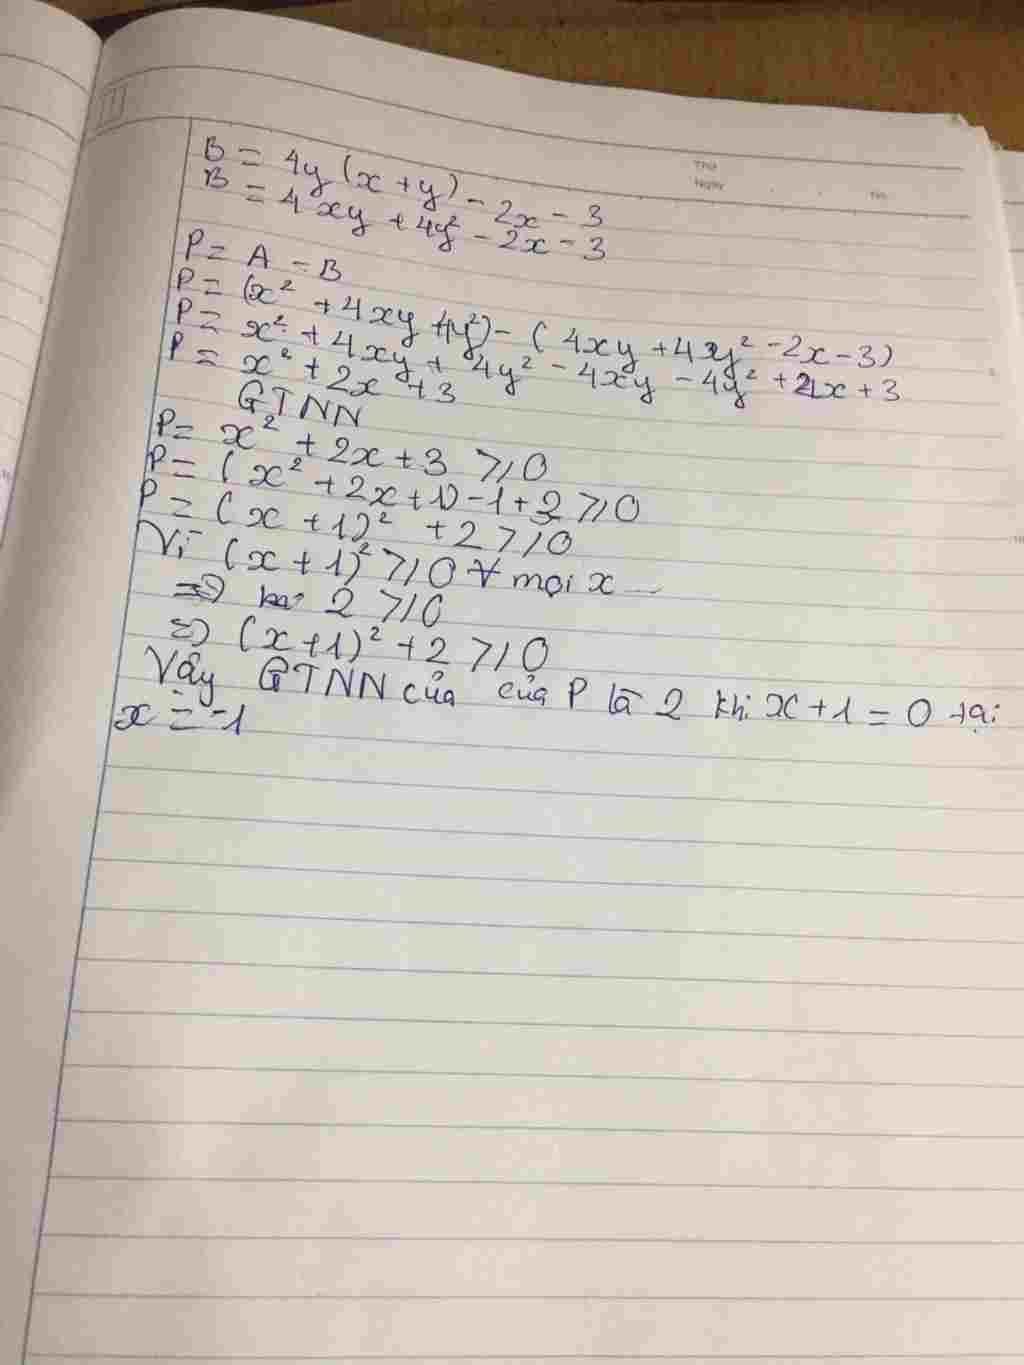 Thứ
Ngày
No.
B = 4y (x + y) - 2x - 3
B = 4xy + 4y² - 2x - 3
P = A - B
P = (x² + 4xy + 4y²) - (4xy + 4y² - 2x - 3)
P = x² + 4xy + 4y² - 4xy - 4y² + 2x + 3
P = x² + 2x + 3
GTNN
P = x² + 2x + 3 ≥ 0
P = (x² + 2x + 1) - 1 + 3 ≥ 0
P = (x + 1)² + 2 ≥ 0
Vì (x + 1)² ≥ 0 ∀ mọi x
=> 2 ≥ 0
=> (x + 1)² + 2 ≥ 0
Vậy GTNN của của P là 2 khi x + 1 = 0 tại
x = -1